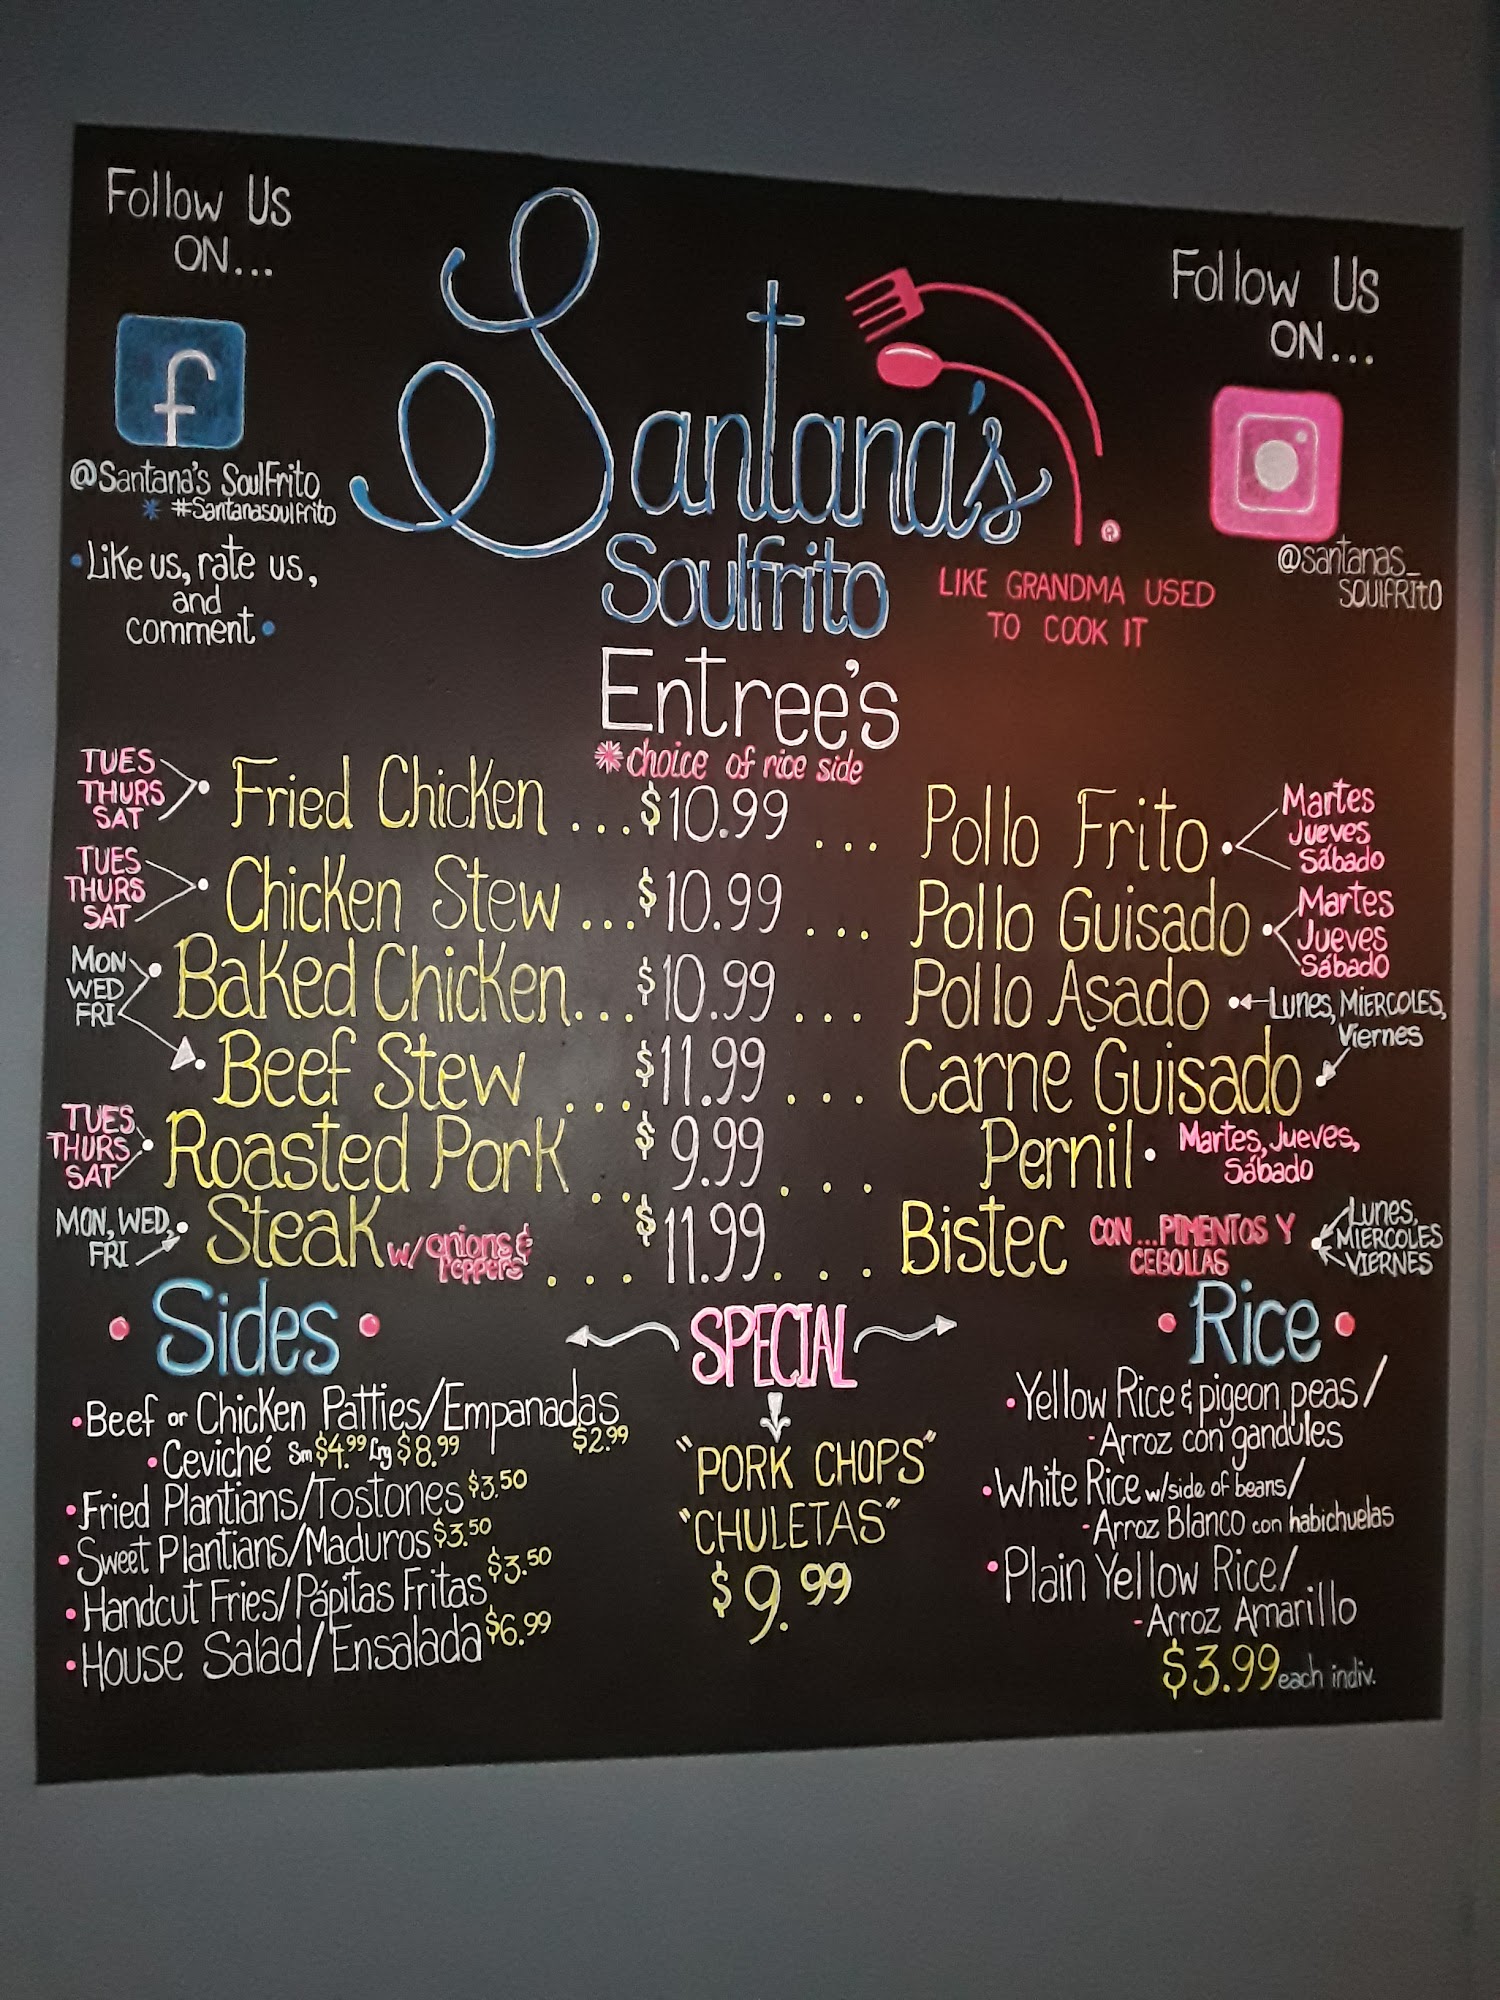 Follow Us
ON...
@Santana's SoulFrito
* #Santanasoulfrito
• Like us, rate us,
and
comment •
Santana's
Soulfrito
LIKE GRANDMA USED
TO COOK IT
Follow Us
ON...
@santanas_
SOULFRITO
Entree's
* choice of rice side
TUES
THURS
SAT
Fried Chicken ... $10.99 ... Pollo Frito
Martes
Jueves
Sábado
TUES
THURS
SAT
Chicken Stew ... $10.99 ... Pollo Guisado
Martes
Jueves
Sábado
MON
WED
FRI
Baked Chicken... $10.99 ... Pollo Asado
Lunes, MIERCOLES,
Viernes
Beef Stew ... $11.99 ... Carne Guisado
TUES
THURS
SAT
Roasted Pork .. $9.99 ... Pernil
Martes, Jueves,
Sábado
MON, WED,
FRI
Steak w/ onions &
Peppers ... $11.99 ... Bistec CON...PIMENTOS Y
CEBOLLAS
Lunes,
MIERCOLES
VIERNES
• Sides •
• Beef or Chicken Patties/Empanadas
$2.99
• Ceviché Sm $4.99 Lrg $8.99
• Fried Plantians/Tostones $3.50
• Sweet Plantians/Maduros $3.50
• Handcut Fries/Pápitas Fritas $3.50
• House Salad/Ensalada $6.99
SPECIAL
"PORK CHOPS"
"CHULETAS"
$9.99
• Rice •
• Yellow Rice & pigeon peas/
- Arroz con gandules
• White Rice w/side of beans/
- Arroz Blanco con habichuelas
• Plain Yellow Rice/
- Arroz Amarillo
$3.99 each indiv.